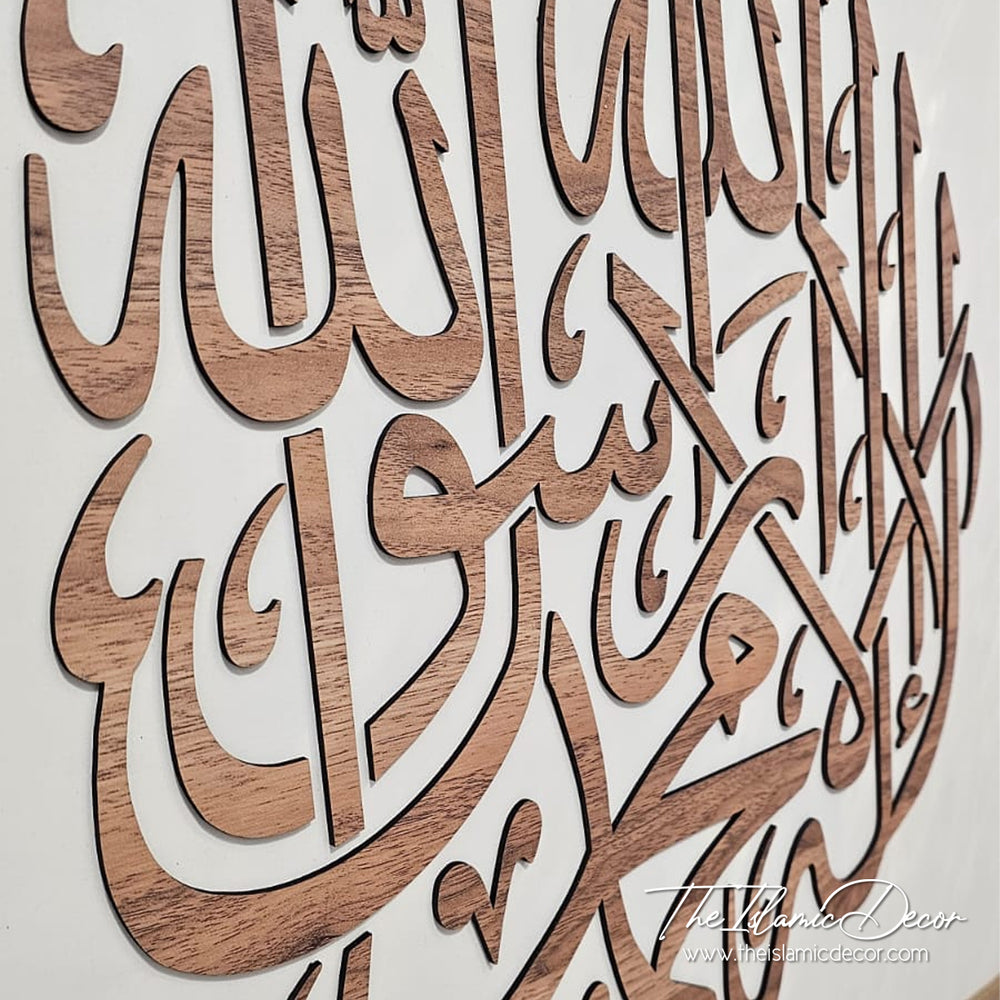 لا إله إلا الله
محمد رسول الله
The Islamic Decor
www.theislamicdecor.com